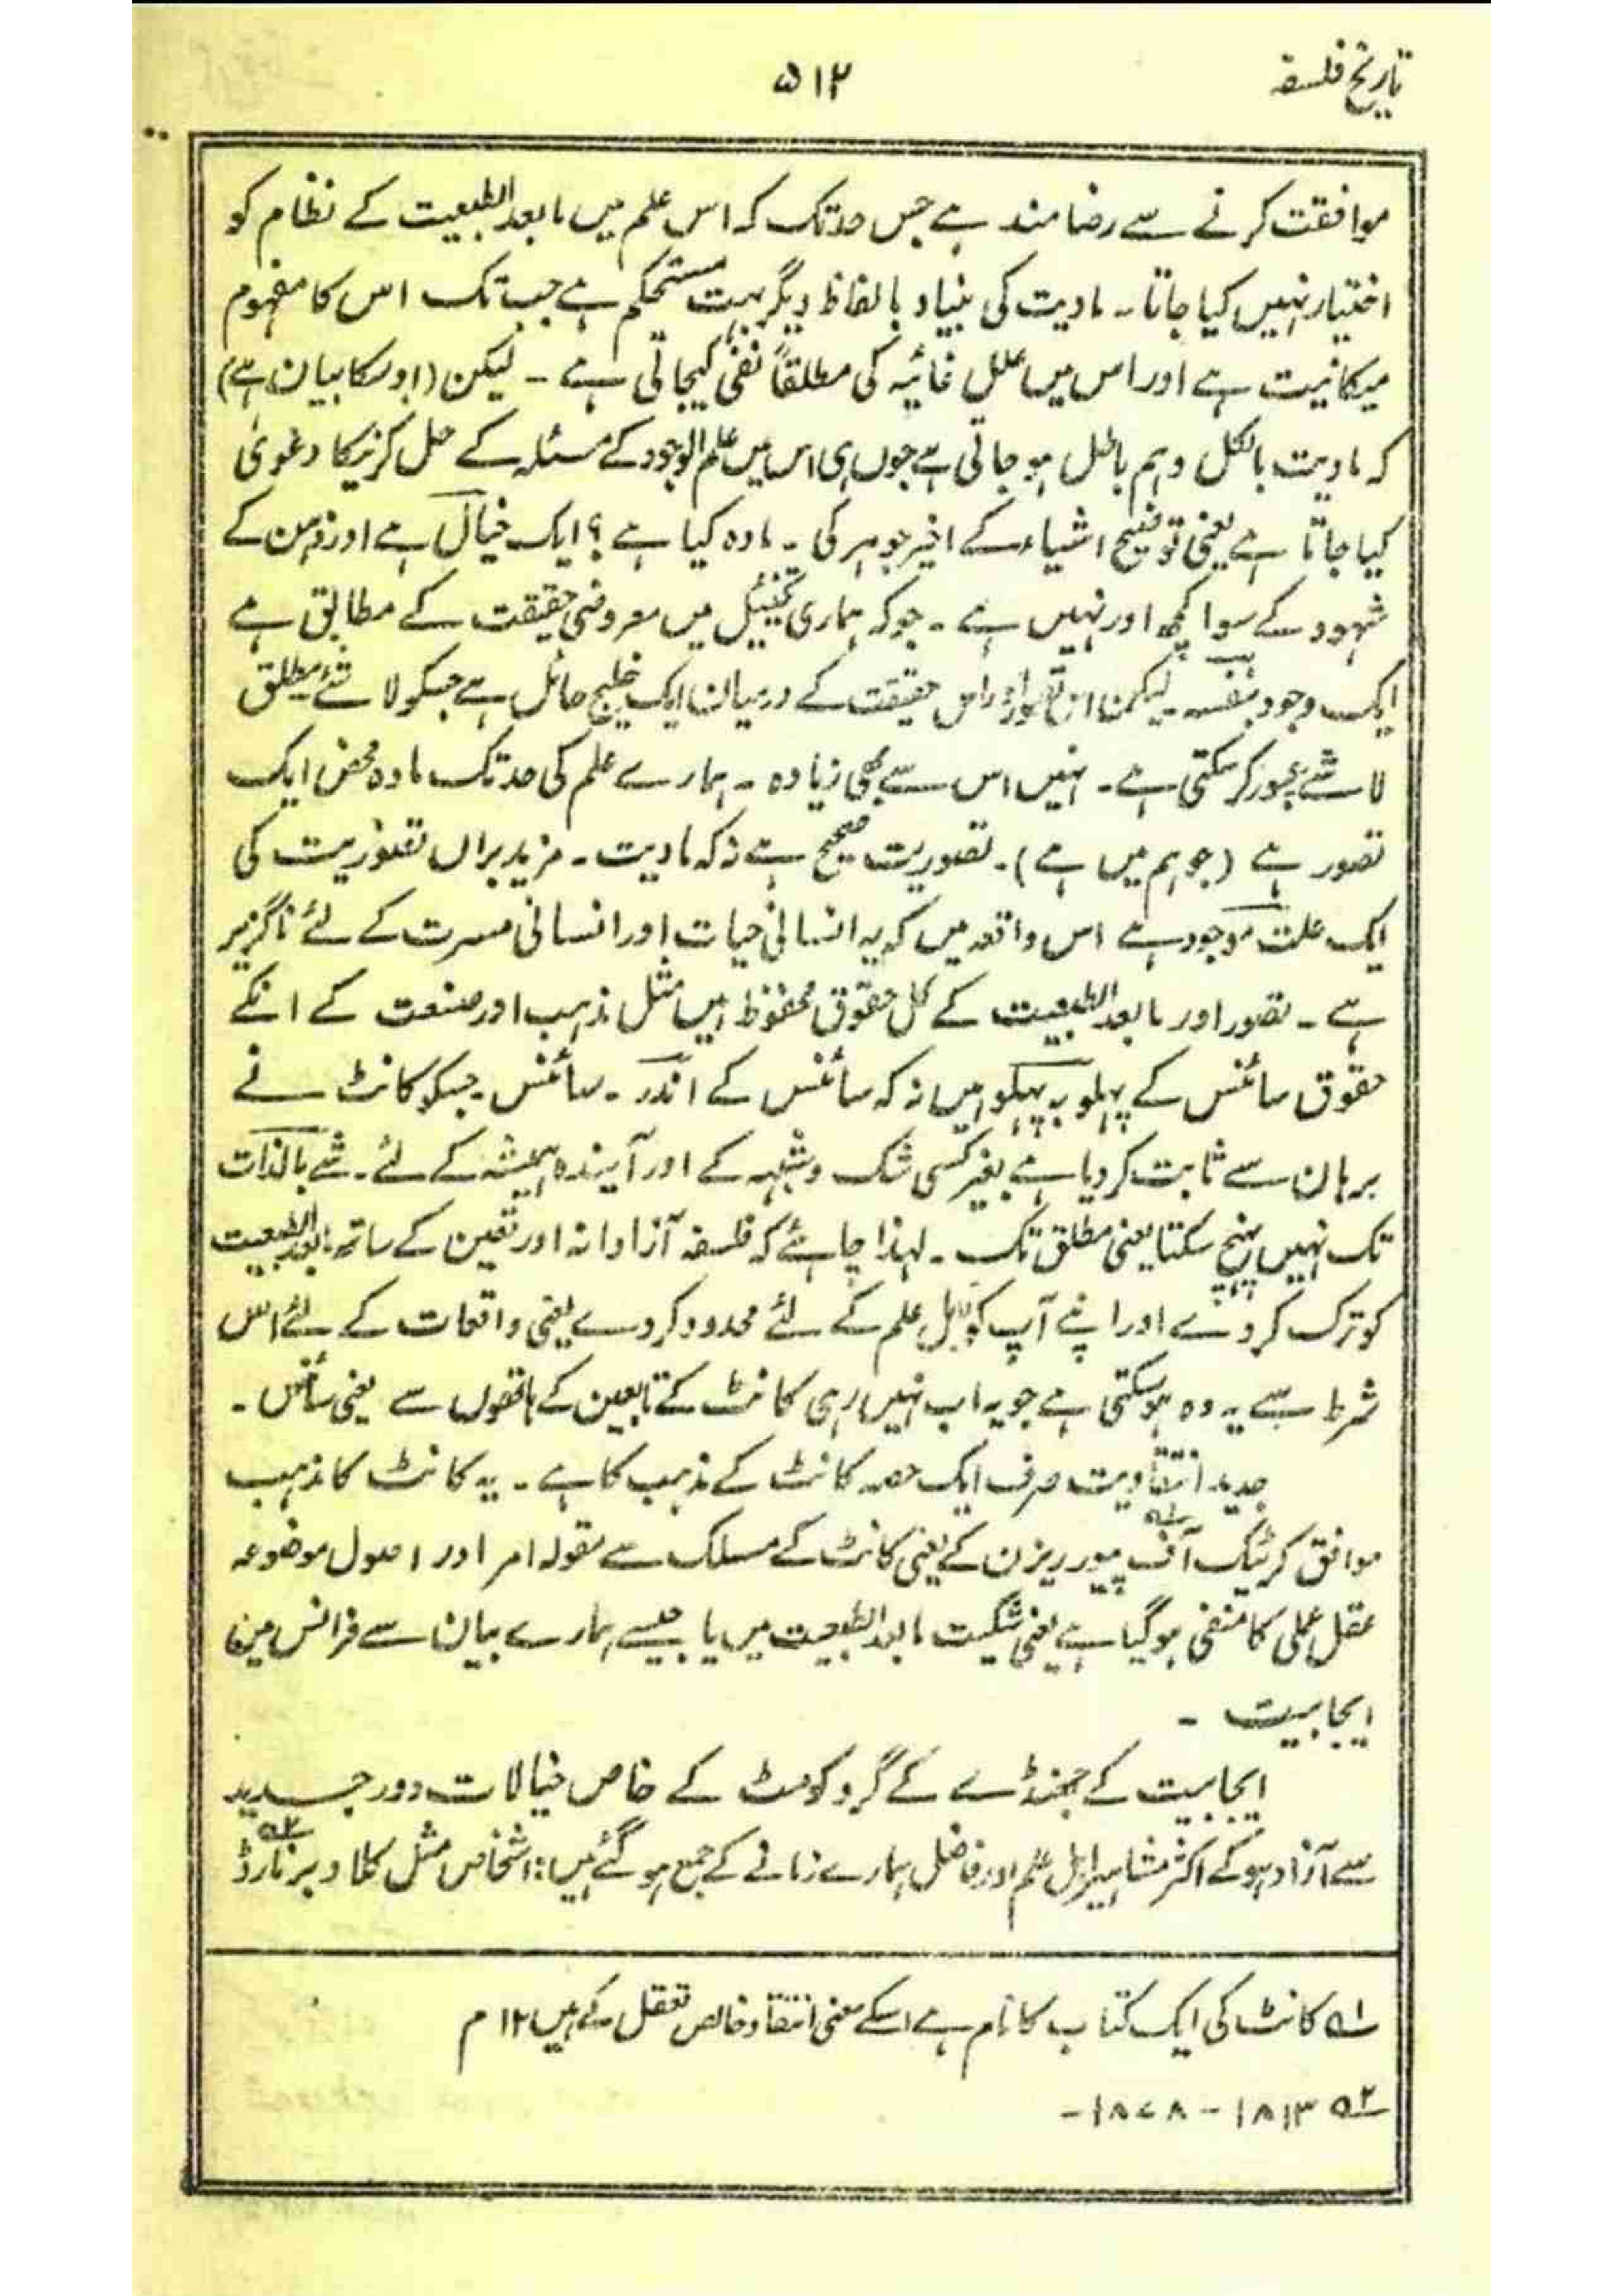 تاریخ فلسفہ
۵۱۲
موافقت کرنے سے رضامند ہے جس حد تک کہ اس علم میں مابعد الطبیعت کے نظام کو
اختیار نہیں کیا جاتا۔ مادیت کی بنیاد بالفاظ دیگر بہت مستحکم ہے جب تک اس کا مفہوم
میکانیت ہے اور اس میں علل غائیہ کی مطلقاً نفی کیجاتی ہے ۔ لیکن (اوسکا بیان ہے)
کہ مادیت بالکل وہم باطل ہو جاتی ہے جوں ہی اس میں علم الوجود کے مسئلہ کے حل کرنیکا دعویٰ
کیا جاتا ہے یعنی توضیح اشیاء کے اخیر جوہر کی ۔ مادہ کیا ہے ؟ ایک خیال ہے اور ذہن کے
شہود کے سوا کچھ اور نہیں ہے ۔ جو کہ ہماری تخئیل میں معروضی حقیقت کے مطابق ہے
ایک وجود بنفسہ۔ لیکن ان تصور اور اس حقیقت کے درمیان ایک خلیج حائل ہے جسکو لاشئے مطلق
لاشئے عبور کر سکتی ہے ۔ نہیں اس سے بھی زیادہ ۔ ہمارے علم کی حد تک مادہ محض ایک
تصور ہے (جو ہم میں ہے)۔ تصوریت صحیح ہے نہ کہ مادیت۔ مزید براں تصوریت کی
ایک علت موجود ہے اس واقعہ میں کہ یہ انسانی حیات اور انسانی مسرت کے لئے ناگزیر
ہے ۔ تصور اور مابعد الطبیعت کے کل حقوق محفوظ ہیں مثل مذہب اور صنعت کے انکے
حقوق سائنس کے پہلو بہ پہلو ہیں نہ کہ سائنس کے اندر ۔ سائنس جسکو کانٹ نے
برہان سے ثابت کر دیا ہے بغیر کسی شک و شبہہ کے اور آیندہ ہمیشہ کے لئے۔ شے بالذات
تک نہیں پہنچ سکتا یعنی مطلق تک ۔ لہذا چاہئے کہ فلسفہ آزادانہ اور تعین کے ساتھ مابعد الطبیعت
کو ترک کر دے اور اپنے آپ کو اہل علم کے لئے محدود کر دے یعنی واقعات کے لئے اس
شرط سے یہ وہ ہو سکتی ہے جو یہ اب نہیں رہی کانٹ کے تابعین کے ہاتھوں سے یعنی سائنس ۔
جدید انتقادیت صرف ایک حصہ کانٹ کے مذہب کا ہے ۔ یہ کانٹ کا مذہب
موافق کرٹیک آف پیور ریزن کے ۱؎ یعنی کانٹ کے مسلک سے مقولہ امر اور اصول موضوعہ
عقل عملی کا منفی ہو گیا ہے یعنی شکیت مابعد الطبیعت میں یا جیسے ہمارے بیان سے فرانس میں
ایجابیت ۔
ایجابیت کے جھنڈے کے گرد کومٹ کے خاص خیالات دور جدید
سے آزاد ہو کے اکثر مشاہیر اہل علم اور فاضل ہمارے زمانے کے جمع ہو گئے ہیں : اشخاص مثل کلاد برنارڈ ۲؎
۱؎ کانٹ کی ایک کتاب کا نام ہے اسکے معنی انتقاد خالص تعقل کے ہیں ۱۲ م
۲؎ ۱۸۱۳ - ۱۸۷۸ -